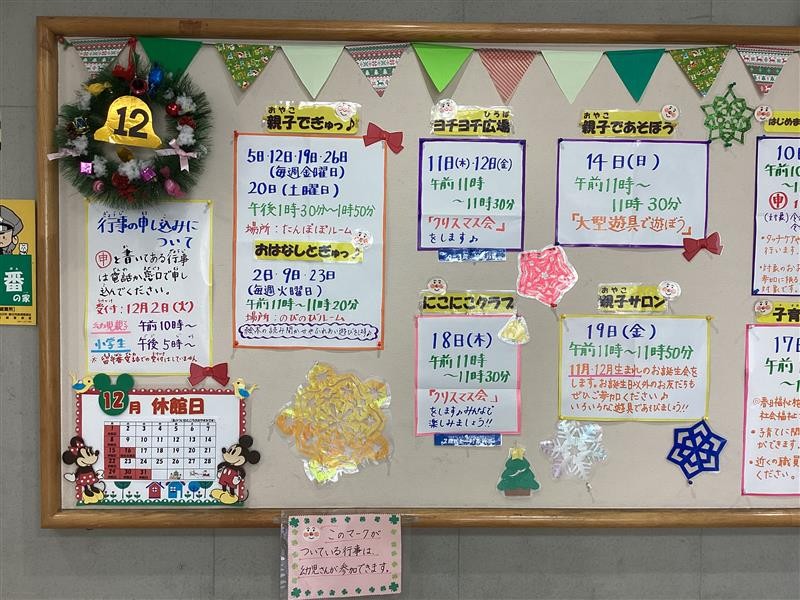 12
行事の申し込みに
ついて
申と書いてある行事
は電話か窓口で申し
込んでください。
受付：12月2日(火)
幼児親子 午前10時〜
小学生 午後5時〜
※留守番電話での受付はしていません
12月 休館日
親子でぎゅっ♪
おやこ
5日・12日・19日・26日
(毎週金曜日)
20日(土曜日)
午後1時30分〜1時50分
場所：たんぽぽルーム
おはなしとぎゅっ♪
2日・9日・23日
(毎週火曜日)
午前11時〜11時20分
場所：のびのびルーム
絵本の読み聞かせやふれあい遊びをします♪
ひろば
ヨチヨチ広場
11日(木)・12日(金)
午前11時
〜11時30分
「クリスマス会」
をします♪
にこにこクラブ
18日(木)
午前11時
〜11時30分
「クリスマス会」
をします♪みんなで
楽しみましょう!!
おやこ
親子であそぼう
14日(日)
午前11時〜
11時30分
「大型遊具で遊ぼう」
おやこ
親子サロン
19日(金)
午前11時〜11時50分
11月・12月生まれのお誕生会を
します。お誕生日以外のお友だちも
ぜひご参加ください♪
いろいろな遊具であそびましょう!!
はじめま
10日
申
子育
17日
番
の家
このマークが
ついている行事は、
幼児さんが参加できます。